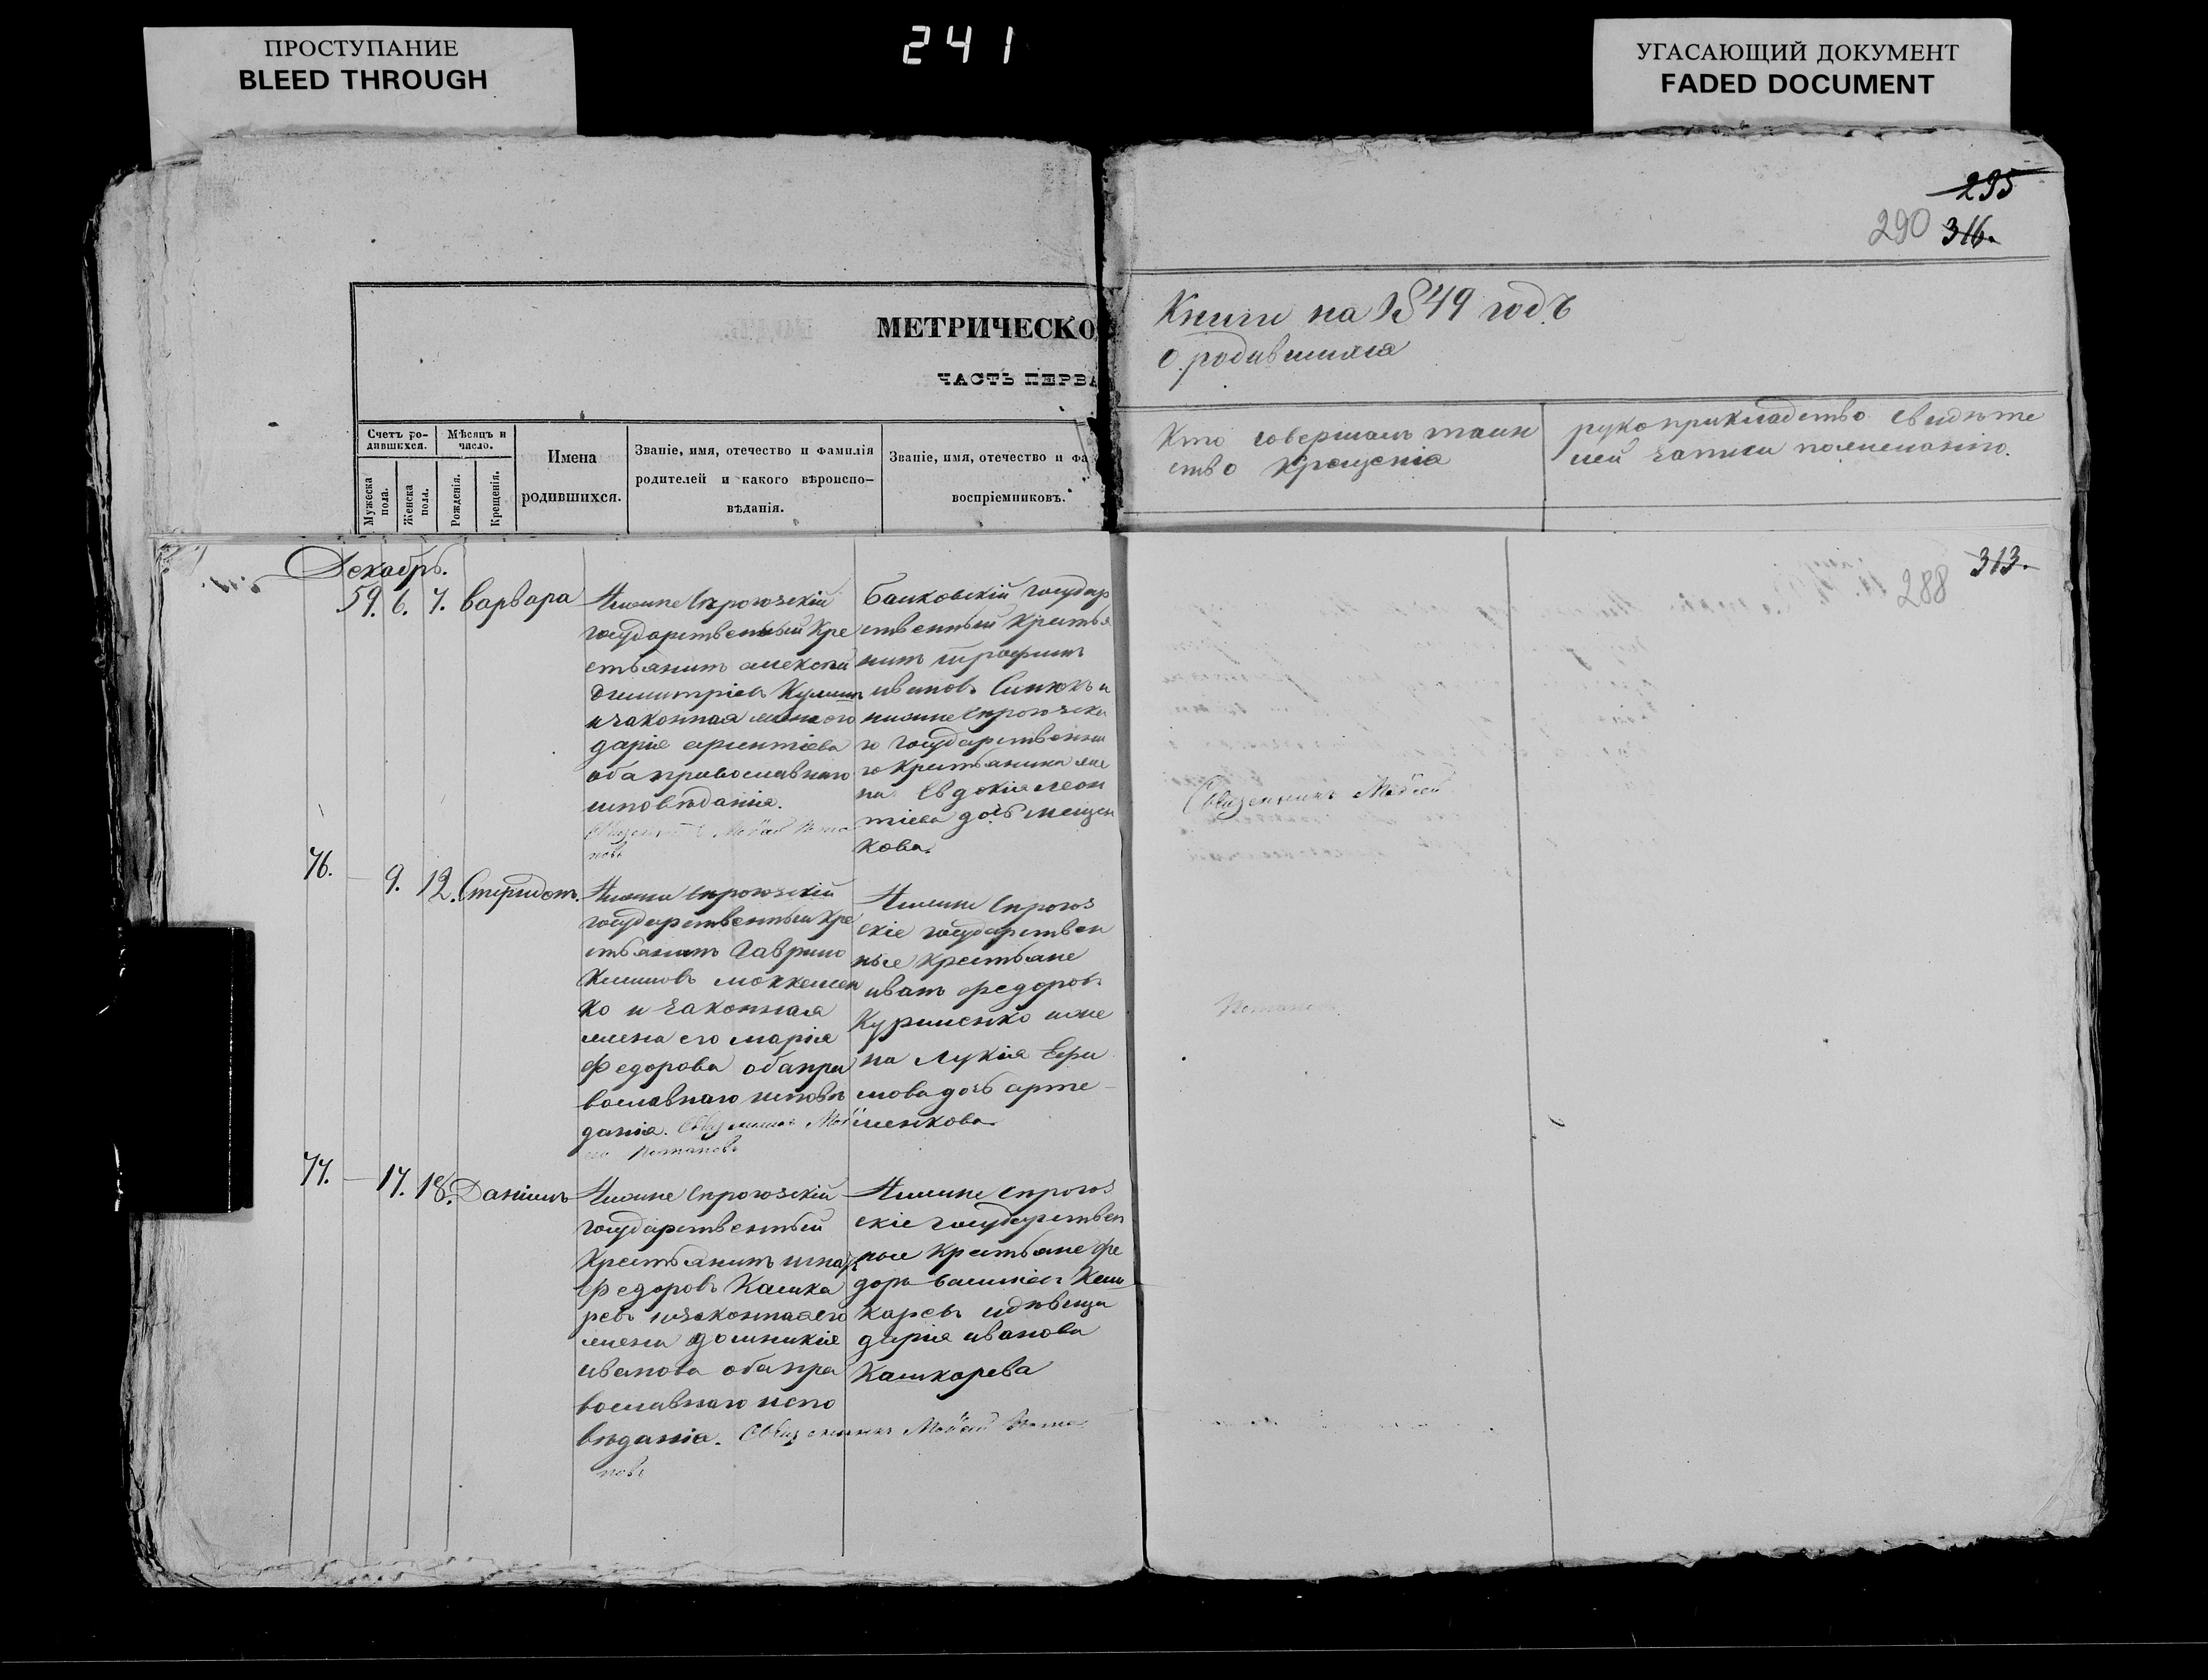 ПРОСТУПАНИЕ
BLEED THROUGH
241
УГАСАЮЩИЙ ДОКУМЕНТ
FADED DOCUMENT
295
290 316.
МЕТРИЧЕСКО
ЧАСТЬ ПЕРВА
Книги на 1849 годъ
о родившихся
Счетъ ро-
дившихся.
Мужеска пола.
Женска пола.
Мѣсяцъ и
число.
Рожденія.
Крещенія.
Имена
родившихся.
Званіе, имя, отечество и фамилія
родителей и какого вѣроиспо-
вѣданія.
Званіе, имя, отечество и фа
воспріемниковъ.
Кто совершалъ таин
ство крещенія
рукоприкладство свидѣте
лей записи по желанію.
313.
288
Декабрь.
59. 6. 7. Варвара
Нижне Сѣрогозскій
государственный кре
стьянинъ алексѣй
димитріевъ
и законная жена его
дарія
оба православнаго
исповѣданія.
Священникъ Мойсей Пота
повъ
государ
ственный крестья
нинъ трофимъ
ивановъ и
нижне сѣрогозска
го государственна
го крестьянина же
на Евдокія леон
тіева дочь
кова.
Священникъ Мойсей
76. 9. 12. Спиридонъ.
Нижне Сѣрогозскій
государственный кре
стьянинъ Гаврило
Климовъ
ко и законная
жена его марія
Федорова оба пра
вославнаго исповѣ
данія. Священникъ Мой
сей Потаповъ
Нижне Сѣрогоз
скіе государствен
ные крестьяне
иванъ федоровъ
Курименко и же
на Лукія Ефи
мова дочь арте-
менкова
77. 17. 18. Даніилъ
Нижне Сѣрогозскій
государственный
крестьянинъ
Федоровъ Кашка
ревъ и законная его
жена домникія
иванова оба пра
вославнаго испо
вѣданія. Священникъ Мойсей Пота
повъ
Нижне Сѣрогоз
скіе государствен
ные крестьяне фе
доръ Каш
каревъ и дѣвица
дарія иванова
Кашкарева